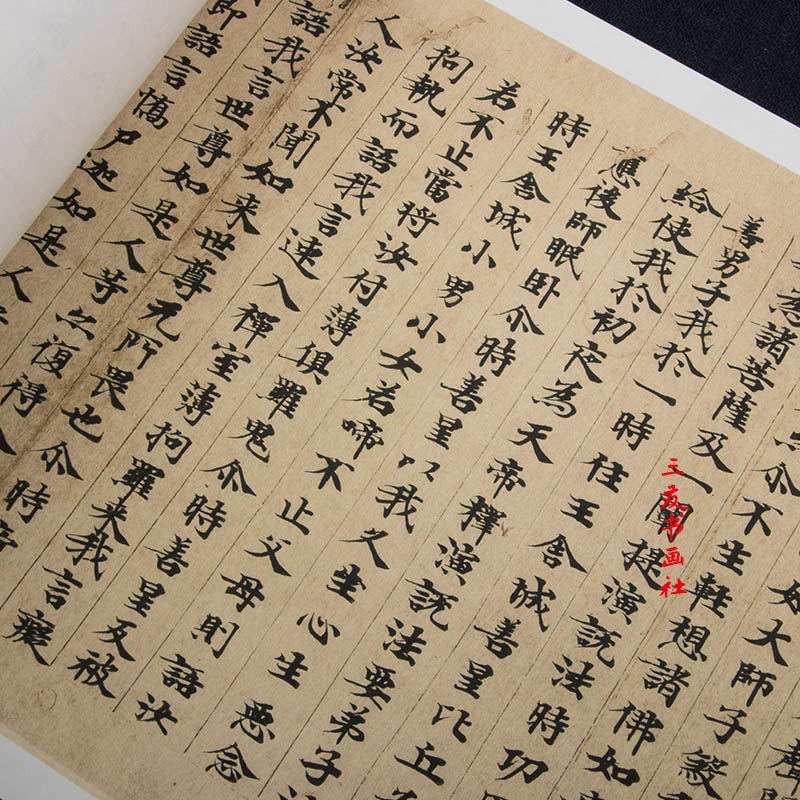 聲
大師子殺
尒不生輕想諸佛如
為諸菩薩及一闡提演說法時功
善男子我於一時住王舍城善星比丘為
給使我於初夜為天帝釋演說法要弟子法
應後師眠卧尒時善星以我久坐心生惡念
時王舍城小男小女若啼不止父母則語汝
若不止當將汝付薄俱羅鬼尒時善星反被
拘執而語我言速入禪室薄拘羅来我言癡
人汝常不聞如来世尊无所畏也尒時
語我言世尊如是人等亦復得入
即語言憍尸迦如是人
书画社